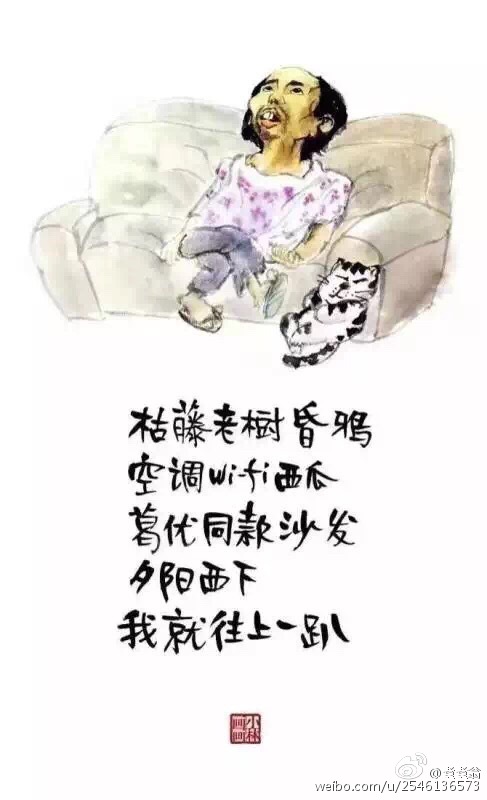 枯藤老树昏鸦
空调wifi西瓜
葛优同款沙发
夕阳西下
我就往上一趴
小林
画画
weibo.com/u/2546136573